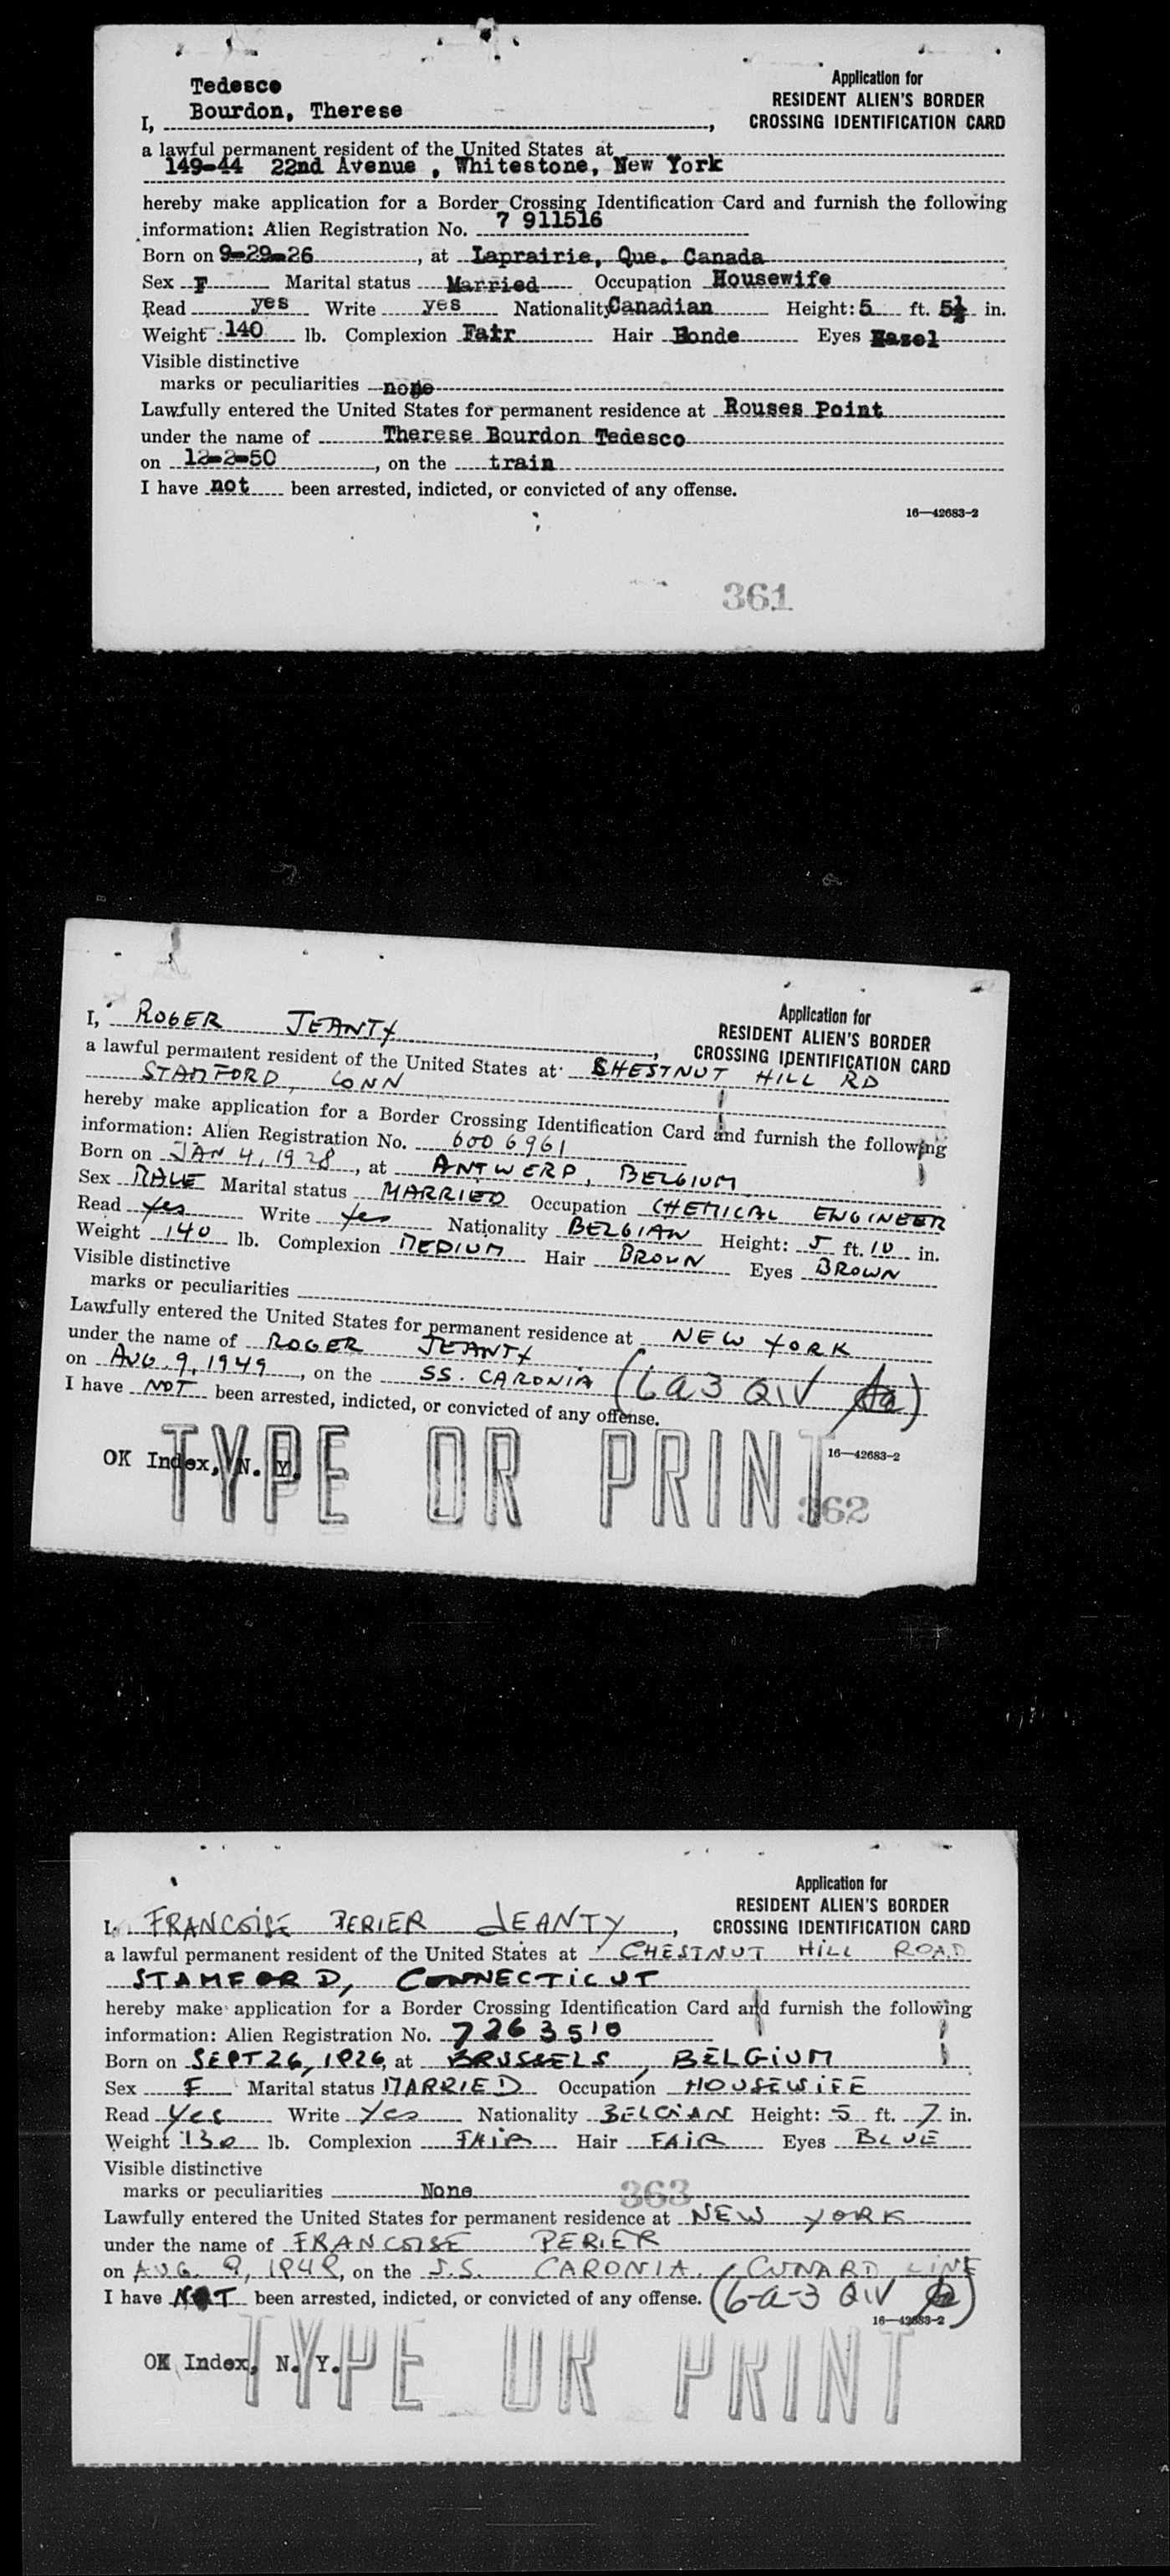 Tedesco
Bourdon, Therese
Application for
RESIDENT ALIEN'S BORDER
CROSSING IDENTIFICATION CARD
I,
a lawful permanent resident of the United States at
149-44 22nd Avenue , Whitestone, New York
hereby make application for a Border Crossing Identification Card and furnish the following
information: Alien Registration No. 7 911516
Born on 9-29-26, at Laprairie, Que. Canada
Sex F Marital status Married Occupation Housewife
Read yes Write yes Nationality Canadian Height: 5 ft. 5½ in.
Weight 140 lb. Complexion Fair Hair Bonde Eyes Hazel
Visible distinctive
marks or peculiarities none
Lawfully entered the United States for permanent residence at Rouses Point
under the name of Therese Bourdon Tedesco
on 12-2-50, on the train
I have not been arrested, indicted, or convicted of any offense.
16—42683-2
361
I, ROGER JEANTY,
Application for
RESIDENT ALIEN'S BORDER
CROSSING IDENTIFICATION CARD
a lawful permanent resident of the United States at CHESTNUT HILL RD
STAMFORD, CONN
hereby make application for a Border Crossing Identification Card and furnish the following
information: Alien Registration No. 6006961
Born on JAN 4, 1928, at ANTWERP, BELGIUM
Sex MALE Marital status MARRIED Occupation CHEMICAL ENGINEER
Read Yes Write Yes Nationality BELGIAN Height: 5 ft. 10 in.
Weight 140 lb. Complexion MEDIUM Hair BROWN Eyes BROWN
Visible distinctive
marks or peculiarities
Lawfully entered the United States for permanent residence at NEW YORK
under the name of ROGER JEANTY
on AUG. 9, 1949, on the SS. CARONIA (6a3 QIV
I have NOT been arrested, indicted, or convicted of any offense.
16—42683-2
OK Index, N. Y.
TYPE OR PRINT
362
Application for
RESIDENT ALIEN'S BORDER
CROSSING IDENTIFICATION CARD
I, FRANCOISE PERIER JEANTY,
a lawful permanent resident of the United States at CHESTNUT HILL ROAD
STAMFORD, CONNECTICUT
hereby make application for a Border Crossing Identification Card and furnish the following
information: Alien Registration No. 7263510
Born on SEPT 26, 1926, at BRUSSELS, BELGIUM
Sex F Marital status MARRIED Occupation HOUSEWIFE
Read Yes Write Yes Nationality BELGIAN Height: 5 ft. 7 in.
Weight 130 lb. Complexion FAIR Hair FAIR Eyes BLUE
Visible distinctive
marks or peculiarities None
363
Lawfully entered the United States for permanent residence at NEW YORK
under the name of FRANCOISE PERIER
on AUG. 9, 1949, on the S.S. CARONIA, CUNARD LINE
I have NOT been arrested, indicted, or convicted of any offense. (6-a-3 QIV
16—42683-2
OK Index, N. Y.
TYPE OR PRINT